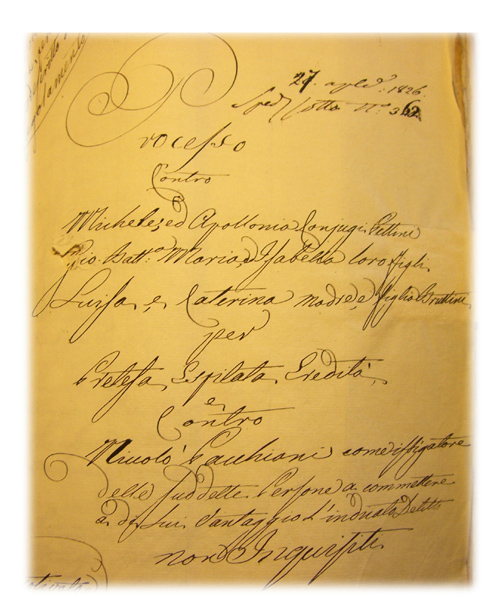 27. aple. 1826
Sped Sotto N.º 362
Processo
Contro
Michele, ed Apollonia Conjugi Pettini
Gio: Batt.ª Maria, ed Isabella loro figli
Luisa, e Caterina madre, e figlia Brattini
per
Pretesa, Espilata, Eredità,
e
Contro
Niccolò Pacchiani come istigatore
delle suddette Persone a commettere
a di lui vantaggio l'indicato Delitto
non Inquisiti